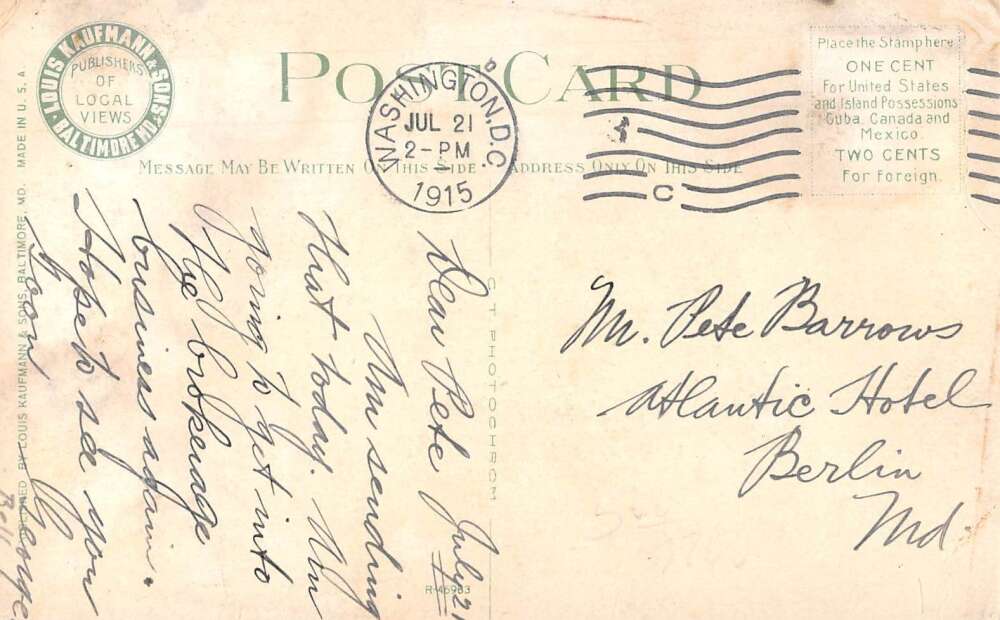 LOUIS KAUFMANN & SONS
PUBLISHERS
OF
LOCAL
VIEWS
BALTIMORE MD.
POST CARD
WASHINGTON, D.C.
JUL 21
2-PM
1915
C
Place the Stamp here
ONE CENT
For United States
and Island Possessions
Cuba, Canada and
Mexico.
TWO CENTS
For Foreign.
MESSAGE MAY BE WRITTEN ON THIS SIDE
ADDRESS ONLY ON THIS SIDE
Dear Pete July 21
Am sending
that today. Am
going to get into
the brokerage
business again.
Hope to see you
soon
George
Mr. Pete Barrows
Atlantic Hotel
Berlin
Md.
C T PHOTOCHROM
R-46983
PUBLISHED BY LOUIS KAUFMANN & SONS, BALTIMORE, MD. MADE IN U. S. A.